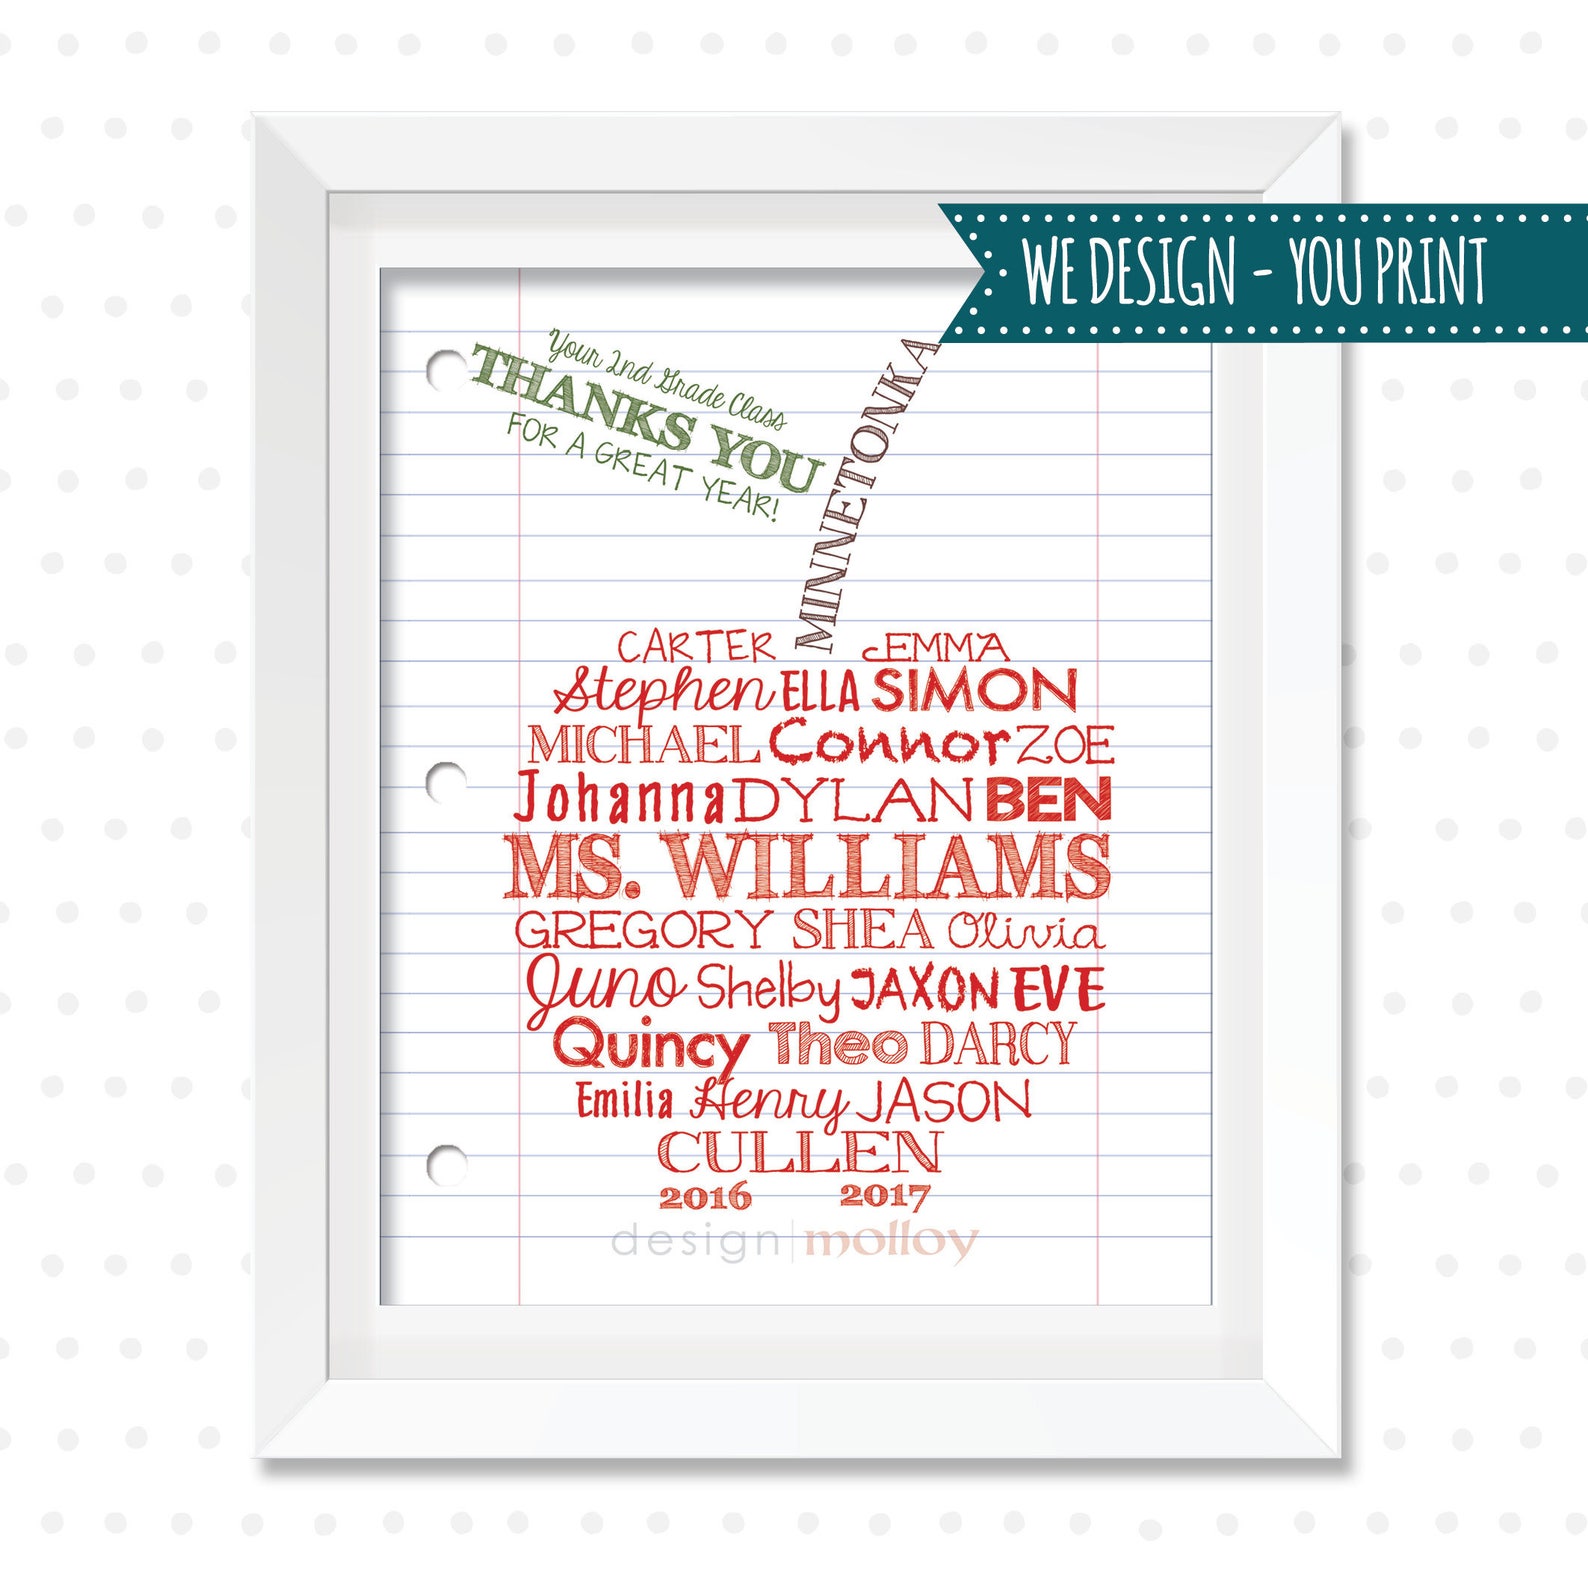 WE DESIGN - YOU PRINT
Your 2nd Grade Class
THANKS YOU
FOR A GREAT YEAR!
MINNETONKA
CARTER EMMA
Stephen ELLA SIMON
MICHAEL Connor ZOE
Johanna DYLAN BEN
MS. WILLIAMS
GREGORY SHEA Olivia
Juno Shelby JAXON EVE
Quincy Theo DARCY
Emilia Henry JASON
CULLEN
2016 2017
design|molloy